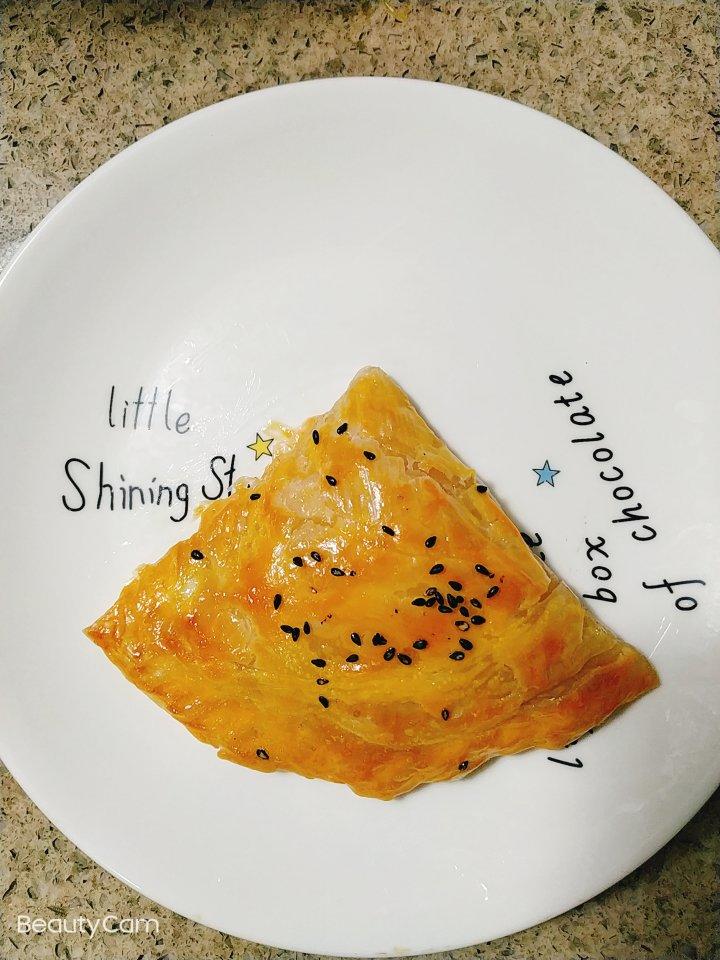 little
Shining St
box
of chocolate
BeautyCam